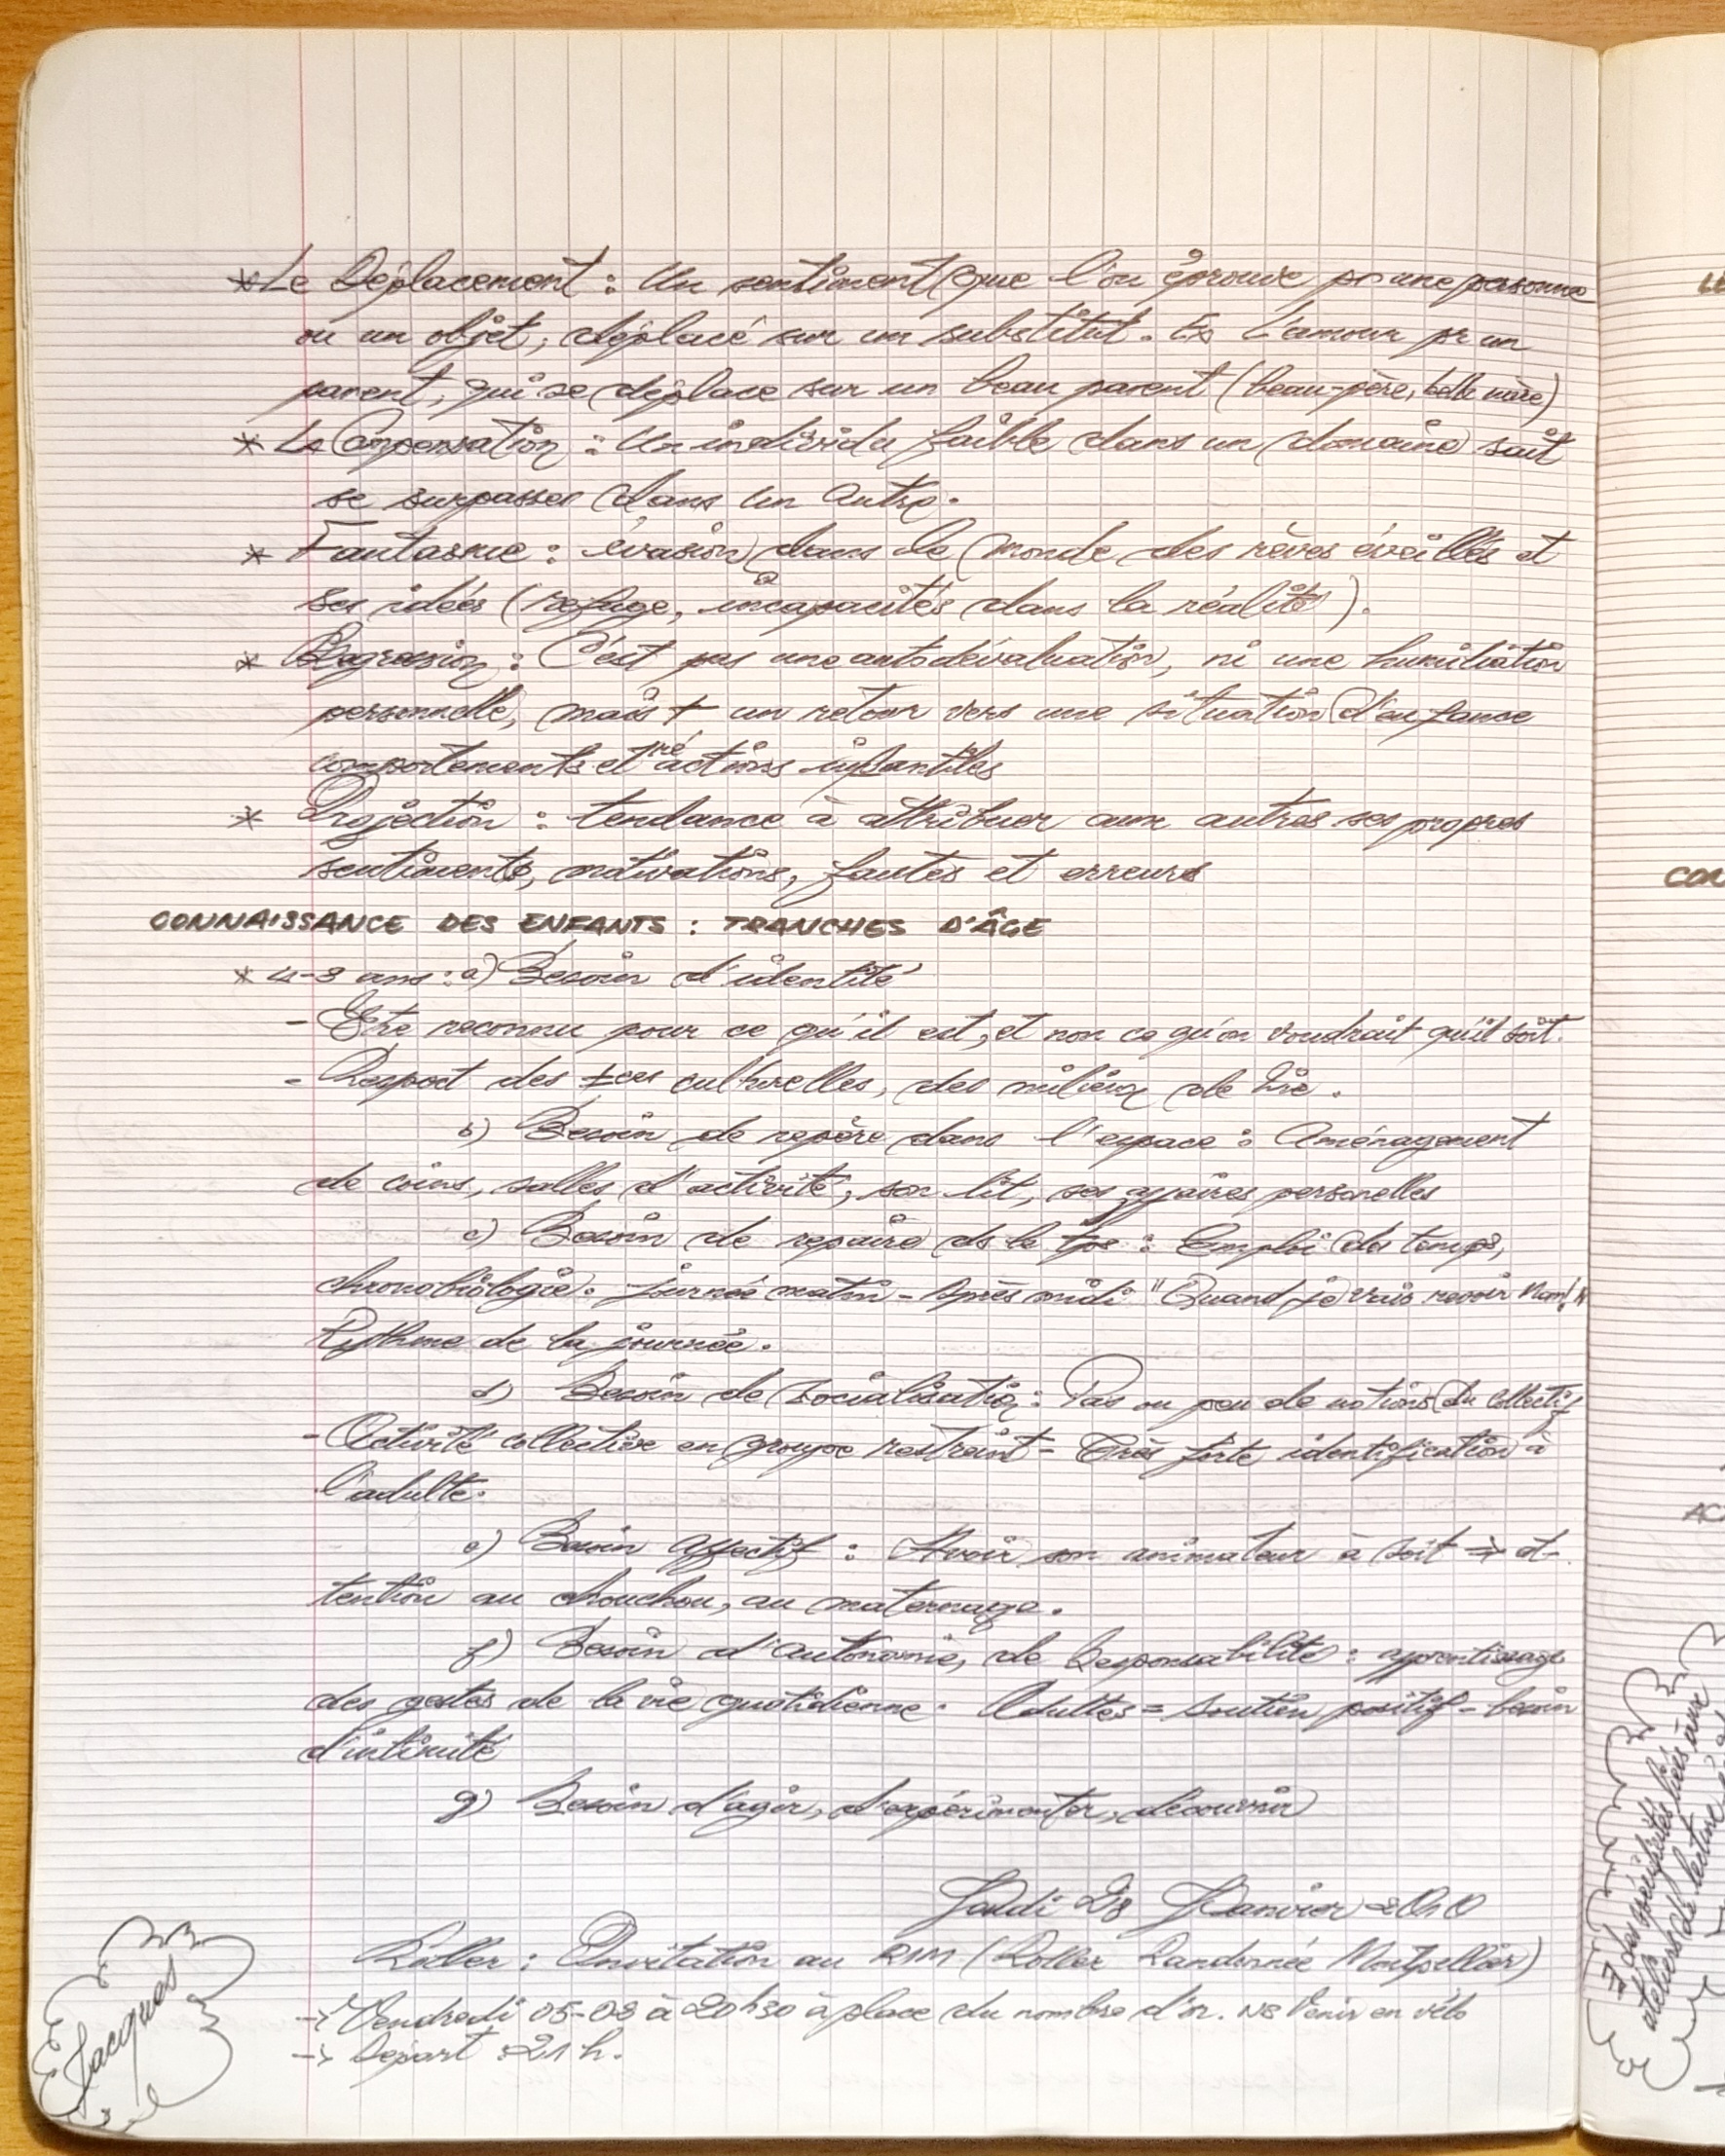 * Le Déplacement : Un sentiment que l'on éprouve pr une personne
ou un objet, déplacé sur un substitut. Ex L'amour pr un
parent, qui se déplace sur un beau parent (beau-père, belle mère)
* La Compensation : Un individu faible dans un domaine sait
se surpasser dans un autre.
* Fantasme : évasion dans le monde des rêves éveillés et
ses idées (refuge, incapacités dans la réalité).
* Régression : C'est pas une autodévaluation, ni une humiliation
personnelle, mais + un retour vers une situation d'enfance
comportements et réactions infantiles
* Projection : tendance à attribuer aux autres ses propres
sentiments, motivations, fautes et erreurs
CONNAISSANCE DES ENFANTS : TRANCHES D'ÂGE
* 4-8 ans : a) Besoin d'identité
- Etre reconnu pour ce qu'il est, et non ce qu'on voudrait qu'il soit.
- Respect des ±ces culturelles, des milieux de vie.
b) Besoin de repère dans l'espace : Aménagement
de coins, salles d'activité, son lit, ses affaires personelles
c) Besoin de repaire ds le tps : Emploi du temps,
chronobiologie. journée matin - Après midi "Quand je vais revoir Mam!"
Rythme de la journée.
d) Besoin de socialisation : Pas ou peu de notions du collectif
- Activité collective en groupe restreint - Très forte identification à
l'adulte.
e) Besoin affectif : Avoir son animateur à soit => at-
tention au chouchou, au maternage.
f) Besoin d'autonomie, de Responsabilité : apprentissage
des gestes de la vie quotidienne. Adultes = soutien positif - besoin
d'intimité
g) Besoin d'agir, d'expérimenter, découvrir
Jeudi 28 Janvier 2010
Roller : Invitation au RIM (Roller Randonnée Montpellier)
-> Vendredi 05-02 à 20h30 à place du nombre d'or. NB Venir en vélo
-> Départ : 21 h.
Jacques
LE
COR
AC
∃ des spécificités liées aux
ateliers de lecture